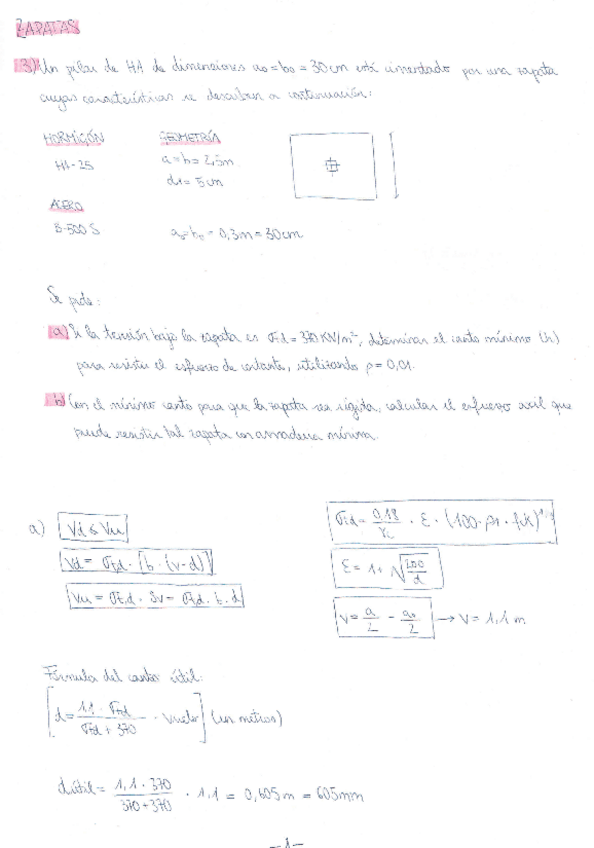 ZAPATAS
3) Un pilar de HA de dimensiones a0 = b0 = 30 cm está cimentado por una zapata
cuyas características se describen a continuación:
HORMIGÓN
GEOMETRÍA
HA-25
a = b = 2,5m
d1 = 5 cm
ACERO
B-500 S
a0 = b0 = 0,3m = 30cm
Se pide:
a) Si la tensión bajo la zapata es σtd = 370 KN/m², determinar el canto mínimo (h)
para resistir el esfuerzo de cortante, utilizando ρ = 0,01.
b) Con el mínimo canto para que la zapata sea rígida, calcular el esfuerzo axil que
puede resistir tal zapata con armadura mínima.
a) Vd ≤ Vu
σcd = 0,18/γc · ε · (100 · ρ1 · fck)
Vd = σtd · [b · (v-d)]
ε = 1 + √(200/d)
Vu = σcd · Sv = σcd · b · d
v = a/2 - a0/2 → v = 1,1 m
Fórmula del canto útil:
[d = 1,1 · σtd / σtd + 370 · vuelo] (en metros)
dútil = 1,1 · 370 / 370+370 · 1,1 = 0,605 m = 605mm
-1-